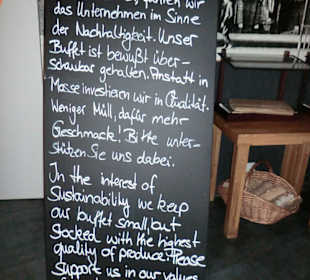 führen wir
das Unternehmen im Sinne
der Nachhaltigkeit. Unser
Buffet ist bewußt über-
schaubar gehalten. Anstatt in
Masse investieren wir in Qualität.
Weniger Müll, dafür mehr
Geschmack! Bitte unter-
stützen Sie uns dabei.
In the interest of
Sustainability we keep
our buffet small, but
stocked with the highest
quality of produce. Please
support us in our values